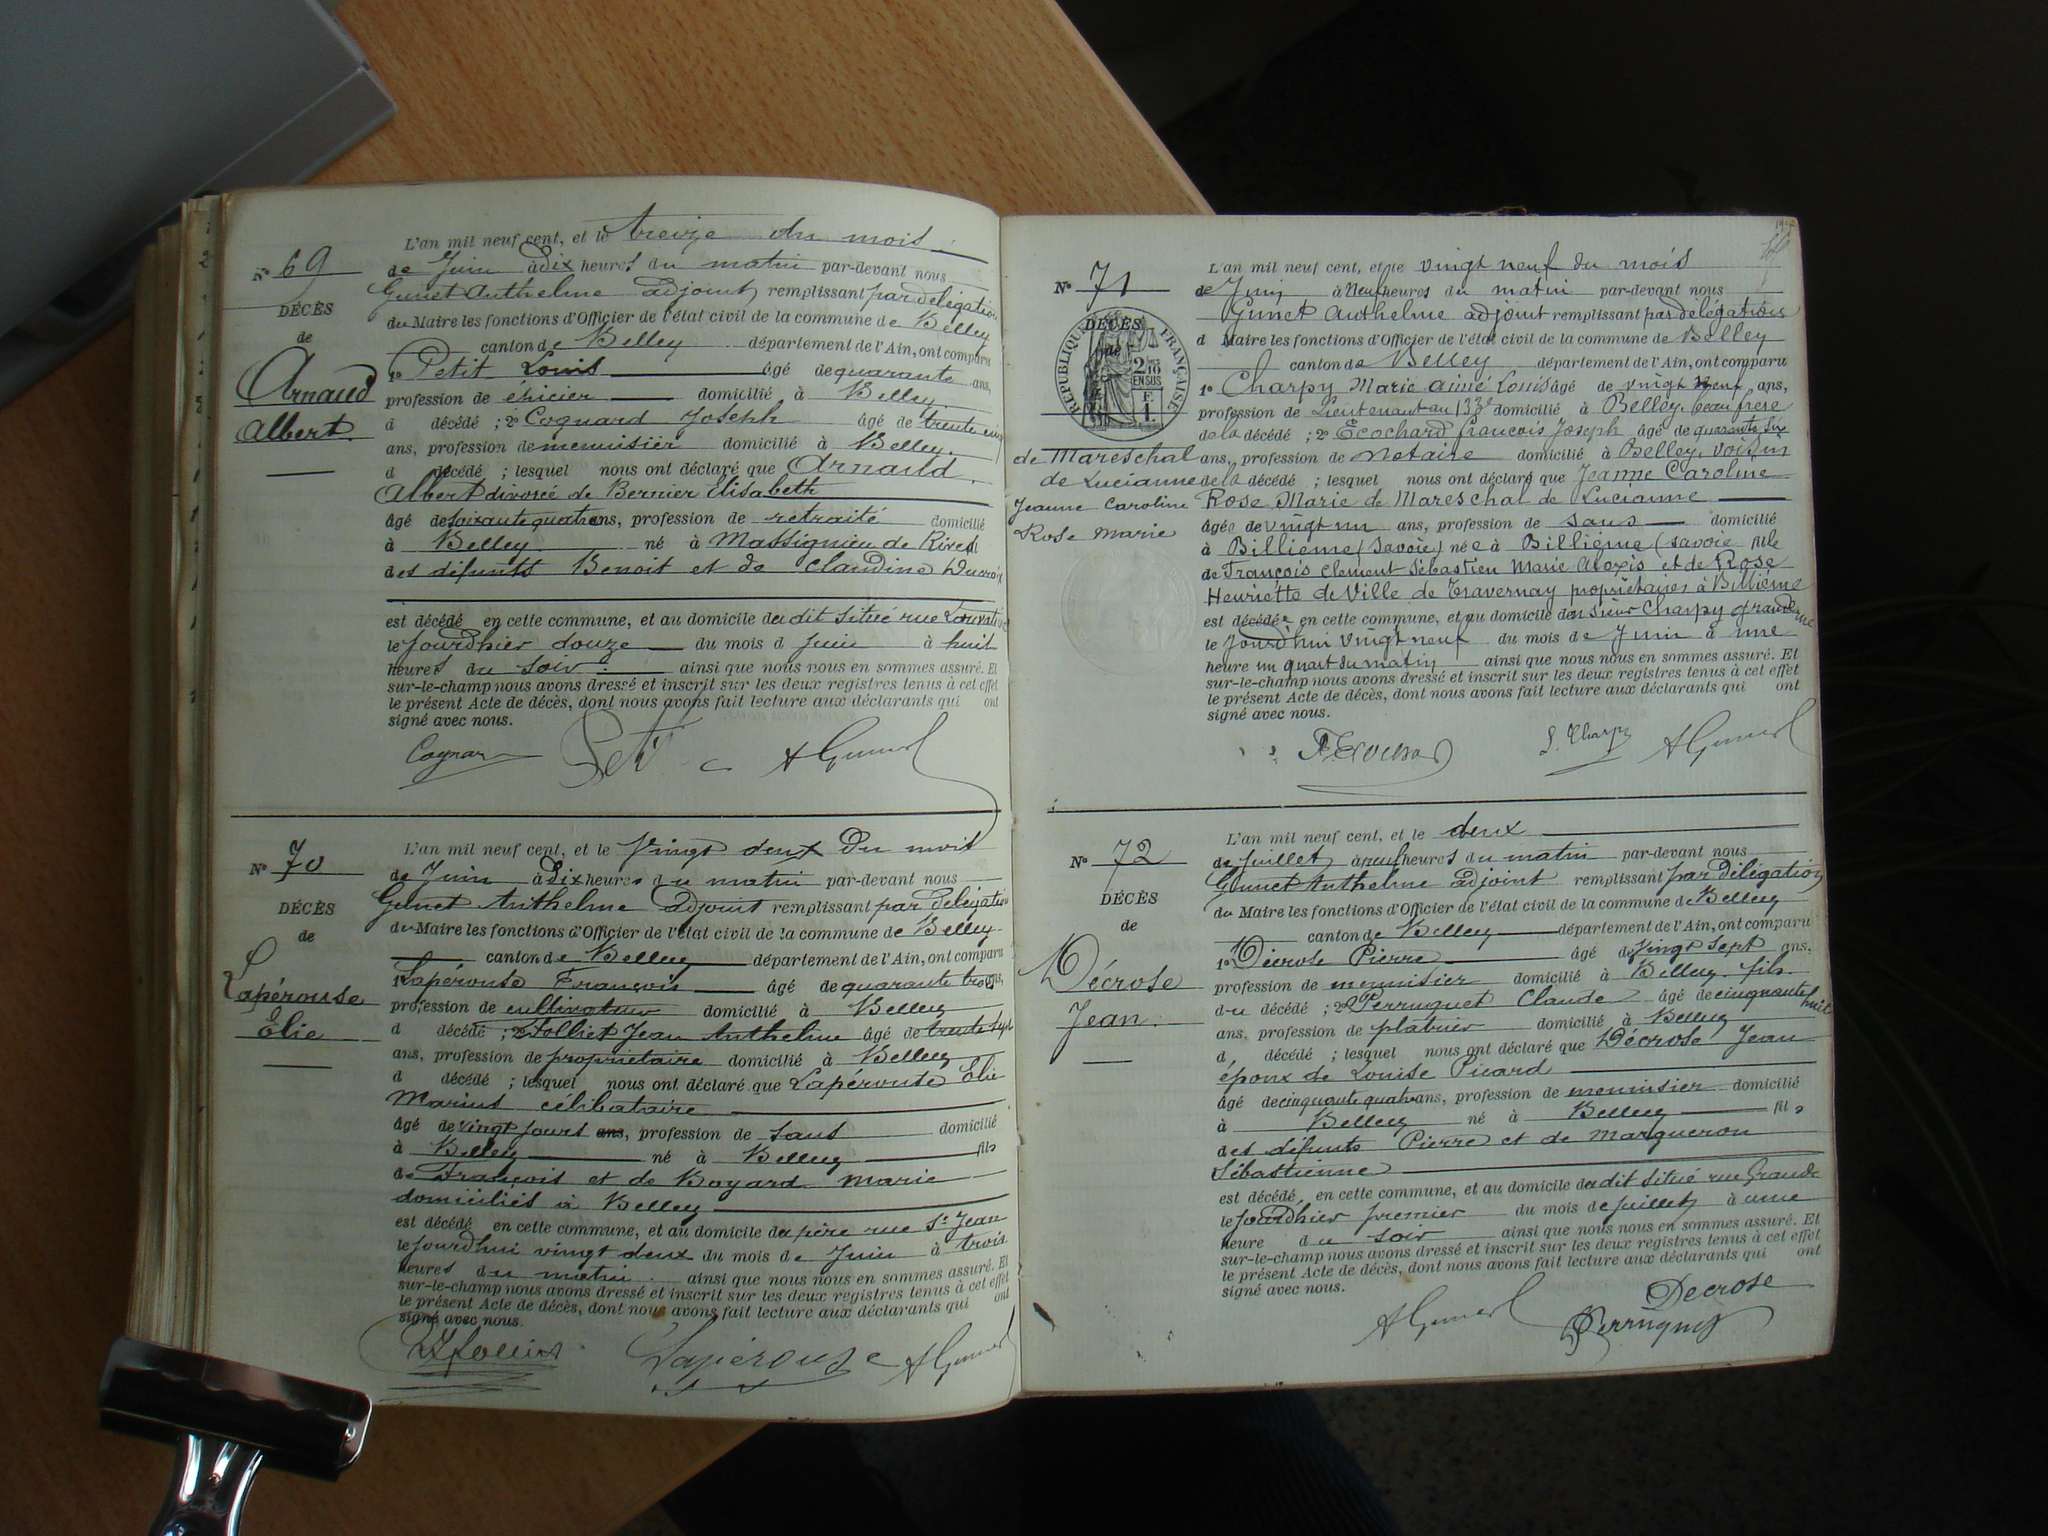 L'an mil neuf cent, et le treize du mois
N° 69
de Juin à dix heures du matin par-devant nous
Gunet Anthelme adjoint remplissant par délégation
DÉCÈS
du Maire les fonctions d'Officier de l'état civil de la commune de Belley
de
canton de Belley département de l'Ain, ont comparu
1° Petit Louis âgé de quarante ans,
Arnaud
profession de épicier domicilié à Belley
Albert
d décédé ; 2° Cognard Joseph âgé de trente cinq
ans, profession de menuisier domicilié à Belley
d décédé ; lesquel nous ont déclaré que Arnaud
Albert divorcé de Bernier Elisabeth
âgé de soixante quatre ans, profession de retraité domicilié
à Belley né à Massignieu de Rives
des défunts Benoit et de Claudine Ducroix
est décédé en cette commune, et au domicile du dit situé rue
le jourdhier douze du mois d Juin à huit
heures du soir ainsi que nous nous en sommes assuré. Et
sur-le-champ nous avons dressé et inscrit sur les deux registres tenus à cet effet
le présent Acte de décès, dont nous avons fait lecture aux déclarants qui ont
signé avec nous.
Cognar Petit A Gunet
L'an mil neuf cent, et le Vingt deux du mois
N° 70
de Juin à Dix heures du matin par-devant nous
Gunet Anthelme adjoint remplissant par délégation
DÉCÈS
du Maire les fonctions d'Officier de l'état civil de la commune de Belley
de
canton de Belley département de l'Ain, ont comparu
1° Lapérouse François âgé de quarante trois ans,
Lapérouse
profession de cultivateur domicilié à Belley
Elie
d décédé ; 2° Folliet Jean Anthelme âgé de trente sept
ans, profession de propriétaire domicilié à Belley
d décédé ; lesquel nous ont déclaré que Lapérouse Elie
Marius célibataire
âgé de vingt jours ans, profession de sans domicilié
à Belley né à Belley fils
de François et de Boyard Marie
domiciliés à Belley
est décédé en cette commune, et au domicile du père rue St Jean
le jourdhui vingt deux du mois de Juin à trois
heures du matin ainsi que nous nous en sommes assuré. Et
sur-le-champ nous avons dressé et inscrit sur les deux registres tenus à cet effet
le présent Acte de décès, dont nous avons fait lecture aux déclarants qui ont
signé avec nous.
Lapérouse A Gunet
L'an mil neuf cent, et le vingt neuf du mois
N° 71
de Juin à Neuf heures du matin par-devant nous
Gunet Anthelme adjoint remplissant par délégation
DÉCÈS
de
RÉPUBLIQUE FRANÇAISE
2/10
EN SUS
F.
1.
d Maire les fonctions d'Officier de l'état civil de la commune de Belley
canton de Belley département de l'Ain, ont comparu
1° Charpy Marie aimé Louis âgé de vingt neuf ans,
profession de Lieutenant au 133e domicilié à Belley, beau frère
de la décédé ; 2° Ecochard françois Joseph âgé de quarante six
de Mareschal
ans, profession de notaire domicilié à Belley, voisin
de Lucianne
de la décédé ; lesquel nous ont déclaré que Jeanne Caroline
Jeanne Caroline
Rose Marie de Mareschal de Lucianne
Rose Marie
âgée de vingt un ans, profession de sans domicilié
à Billième (Savoie) née à Billième (savoie fille
de François Clément Sébastien Marie Aloxis et de Rose
Henriette de Ville de Travernay propriétaires à Billième
est décédée en cette commune, et au domicile du sieur Charpy grande rue
le Jourd'hui vingt neuf du mois de Juin à une
heure un quart du matin ainsi que nous nous en sommes assuré. Et
sur-le-champ nous avons dressé et inscrit sur les deux registres tenus à cet effet
le présent Acte de décès, dont nous avons fait lecture aux déclarants qui ont
signé avec nous.
L. Charpy A Gunet
L'an mil neuf cent, et le deux
N° 72
de Juillet à neuf heures du matin par-devant nous
Gunet Anthelme adjoint remplissant par délégation
DÉCÈS
du Maire les fonctions d'Officier de l'état civil de la commune de Belley
de
canton de Belley département de l'Ain, ont comparu
1° Décrose Pierre âgé de vingt sept ans,
Décrose
profession de menuisier domicilié à Belley fils
Jean
du décédé ; 2° Perruquet Claude âgé de cinquante huit
ans, profession de platrier domicilié à Belley
d décédé ; lesquel nous ont déclaré que Décrose Jean
époux de Louise Picard
âgé de cinquante quatre ans, profession de menuisier domicilié
à Belley né à Belley fils
des défunts Pierre et de Margueron
Sébastienne
est décédé en cette commune, et au domicile du dit situé rue Grande
le jourdhier premier du mois de juillet à une
heure du soir ainsi que nous nous en sommes assuré. Et
sur-le-champ nous avons dressé et inscrit sur les deux registres tenus à cet effet
le présent Acte de décès, dont nous avons fait lecture aux déclarants qui ont
signé avec nous.
Decrose
A Gunet Perruquet